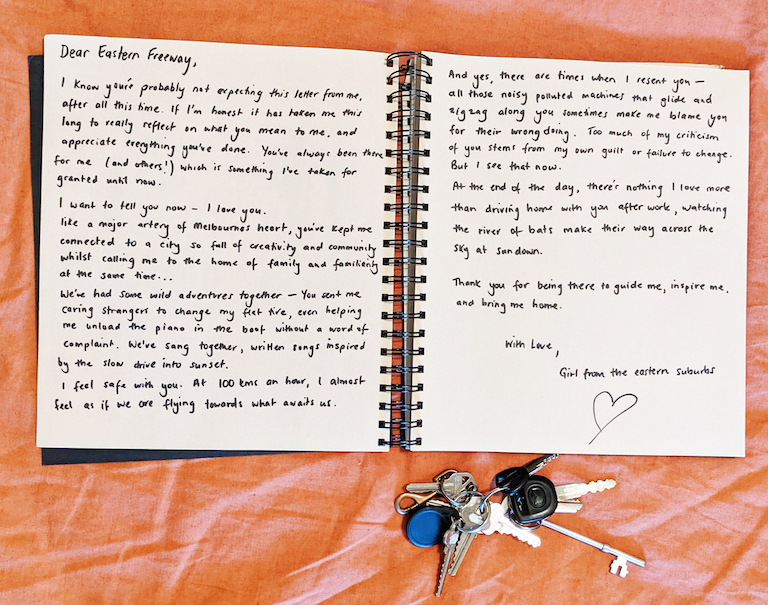 Dear Eastern Freeway,
I know you're probably not expecting this letter from me,
after all this time. If I'm honest it has taken me this
long to really reflect on what you mean to me, and
appreciate everything you've done. You've always been there
for me (and others!) which is something I've taken for
granted until now.
I want to tell you now – I love you.
like a major artery of Melbournes heart, you've kept me
connected to a city so full of creativity and community
whilst calling me to the home of family and familiarity
at the same time...
We've had some wild adventures together – You sent me
caring strangers to change my flat tire, even helping
me unload the piano in the boot without a word of
complaint. We've sang together, written songs inspired
by the slow drive into sunset.
I feel safe with you. At 100 kms an hour, I almost
feel as if we are flying towards what awaits us.
And yes, there are times when I resent you –
all those noisy polluted machines that glide and
zigzag along you sometimes make me blame you
for their wrong doing. Too much of my criticism
of you stems from my own guilt or failure to change.
But I see that now.
At the end of the day, there's nothing I love more
than driving home with you after work, watching
the river of bats make their way across the
sky at sundown.
Thank you for being there to guide me, inspire me,
and bring me home.
With Love,
Girl from the eastern suburbs